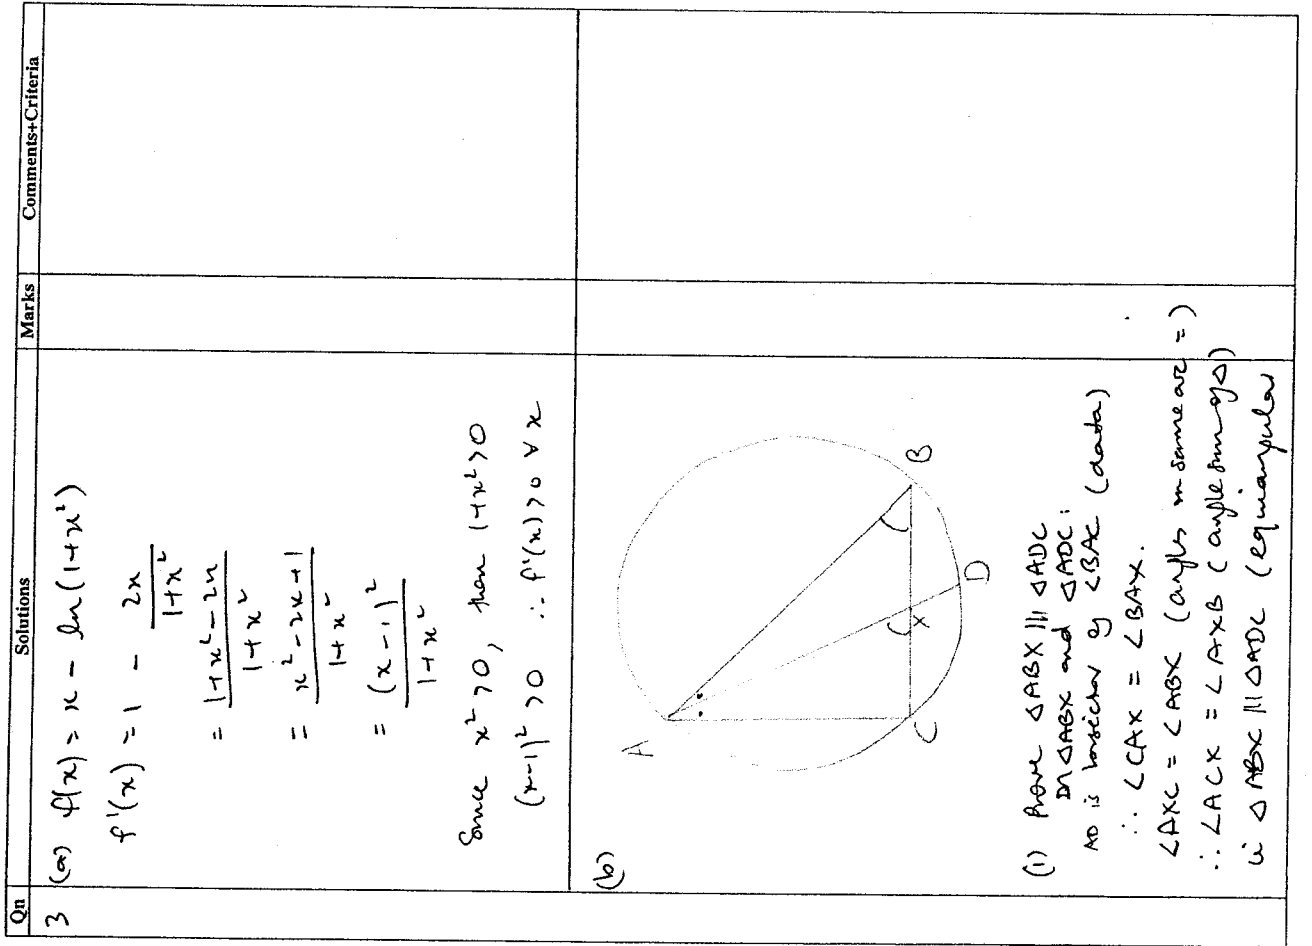 Qn Solutions Marks Comments+Criteria
3 (a) f(x) = x - ln(1+x²)
f'(x) = 1 - 2x/(1+x²)
= (1+x²-2x)/(1+x²)
= (x²-2x+1)/(1+x²)
= (x-1)²/(1+x²)
Since x²>0, then 1+x²>0
(x-1)²>0 ∴ f'(x)>0 ∀ x
(b)
A
B
X
C
D
(i) Prove △ABX ||| △ADC
In △ABX and △ADC:
AD is bisector of ∠BAC (data)
∴ ∠CAX = ∠BAX.
∠AXC = ∠ABX (angles in same arc =)
∴ ∠ACX = ∠AXB (angle sum of △)
ie △ABX ||| △ADC (equiangular